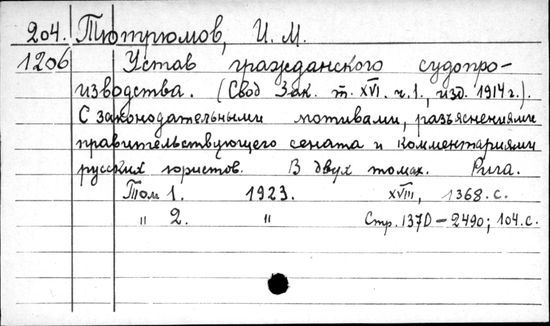 204. Тютрюмов, И. М.
1206 Устав гражданского судопро-
изводства. (Свод Зак. т. XVI. ч. 1., изд. 1914 г.).
С законодательными мотивами, разъяснениями
правительствующего сената и комментариями
русских юристов. В двух томах. Рига.
Том 1. 1923. XVIII, 1368. с.
" 2. " Стр. 1370 – 2490; 104. с.